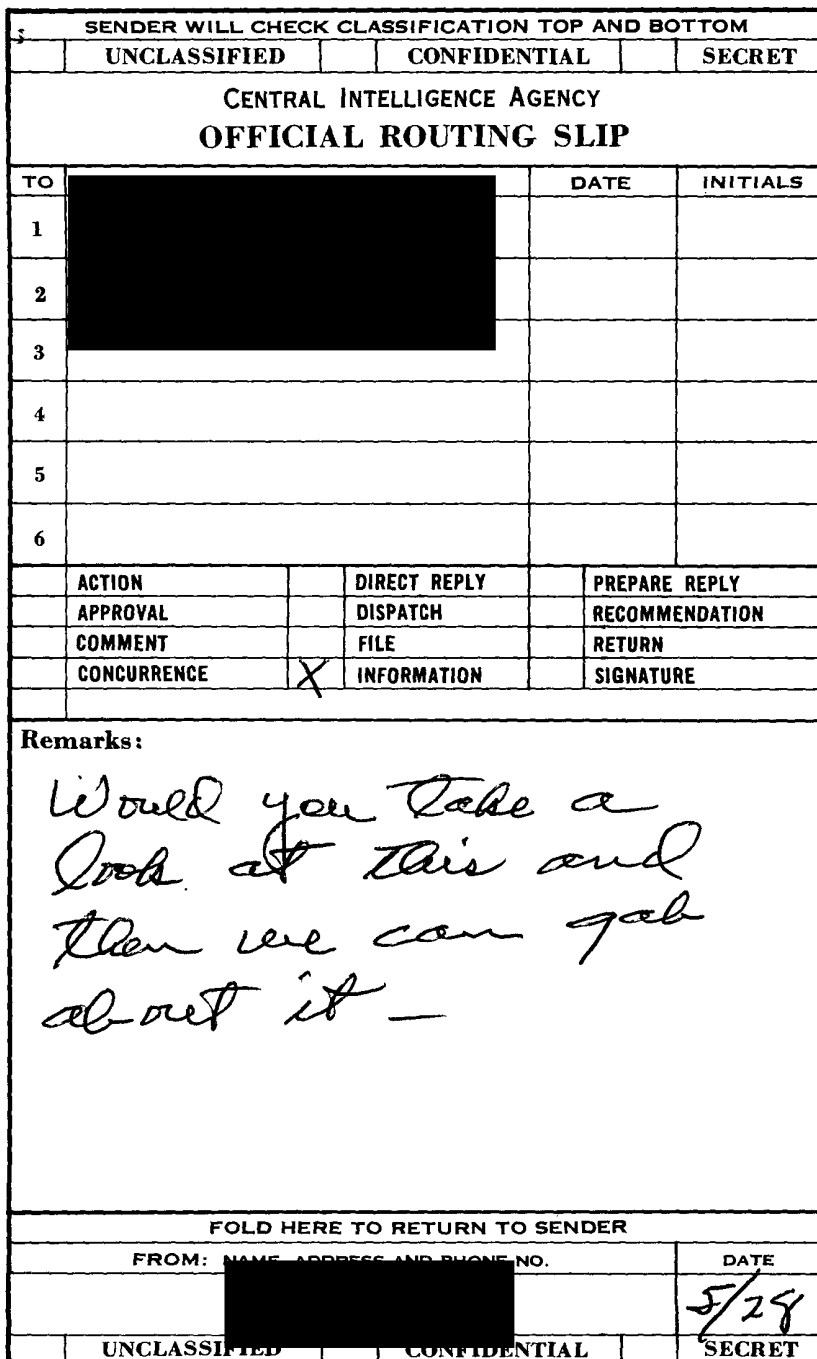 SENDER WILL CHECK CLASSIFICATION TOP AND BOTTOM
UNCLASSIFIED CONFIDENTIAL SECRET
CENTRAL INTELLIGENCE AGENCY
OFFICIAL ROUTING SLIP
TO DATE INITIALS
1
2
3
4
5
6
ACTION DIRECT REPLY PREPARE REPLY
APPROVAL DISPATCH RECOMMENDATION
COMMENT FILE RETURN
CONCURRENCE X INFORMATION SIGNATURE
Remarks:
Would you take a
look at this and
then we can gab
about it —
FOLD HERE TO RETURN TO SENDER
FROM: NAME, ADDRESS AND PHONE NO. DATE
5/28
UNCLASSIFIED CONFIDENTIAL SECRET